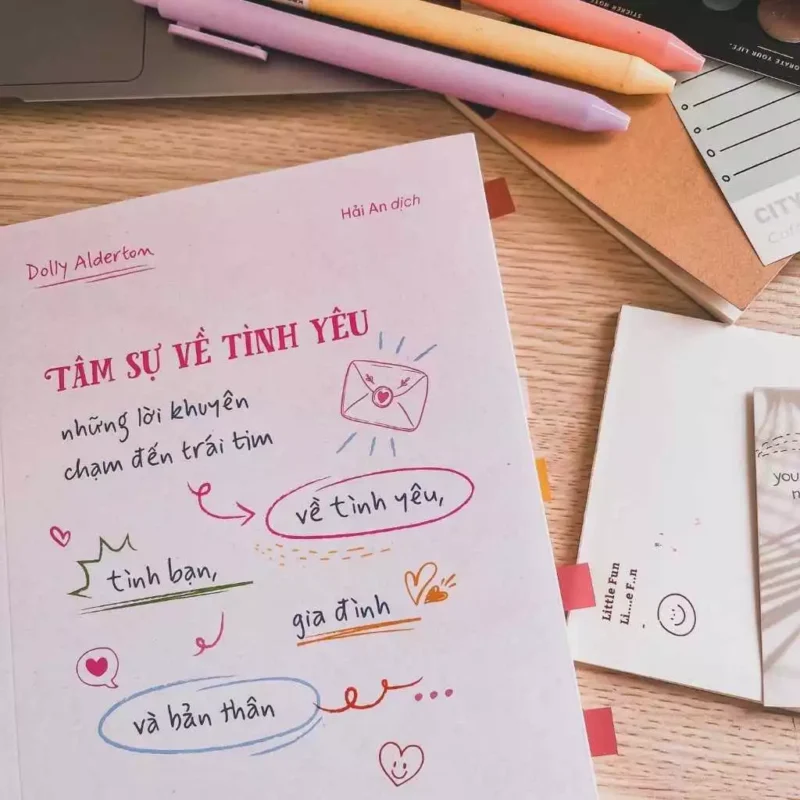 Dolly Alderton
Hải An dịch
TÂM SỰ VỀ TÌNH YÊU
những lời khuyên
chạm đến trái tim
về tình yêu,
tình bạn,
gia đình
và bản thân
STICKER
YOUR LIFE.
CITY
you
Little Fun